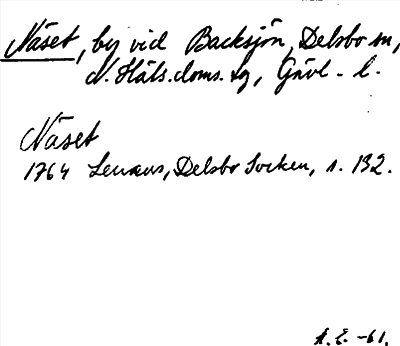 Näset, by vid Backsjön, Delsbo sn,
N. Häls. doms. sg, Gävl. l.
Näset
1764 Lenæus, Delsbo Socken, s. 132.
A. E. -61.